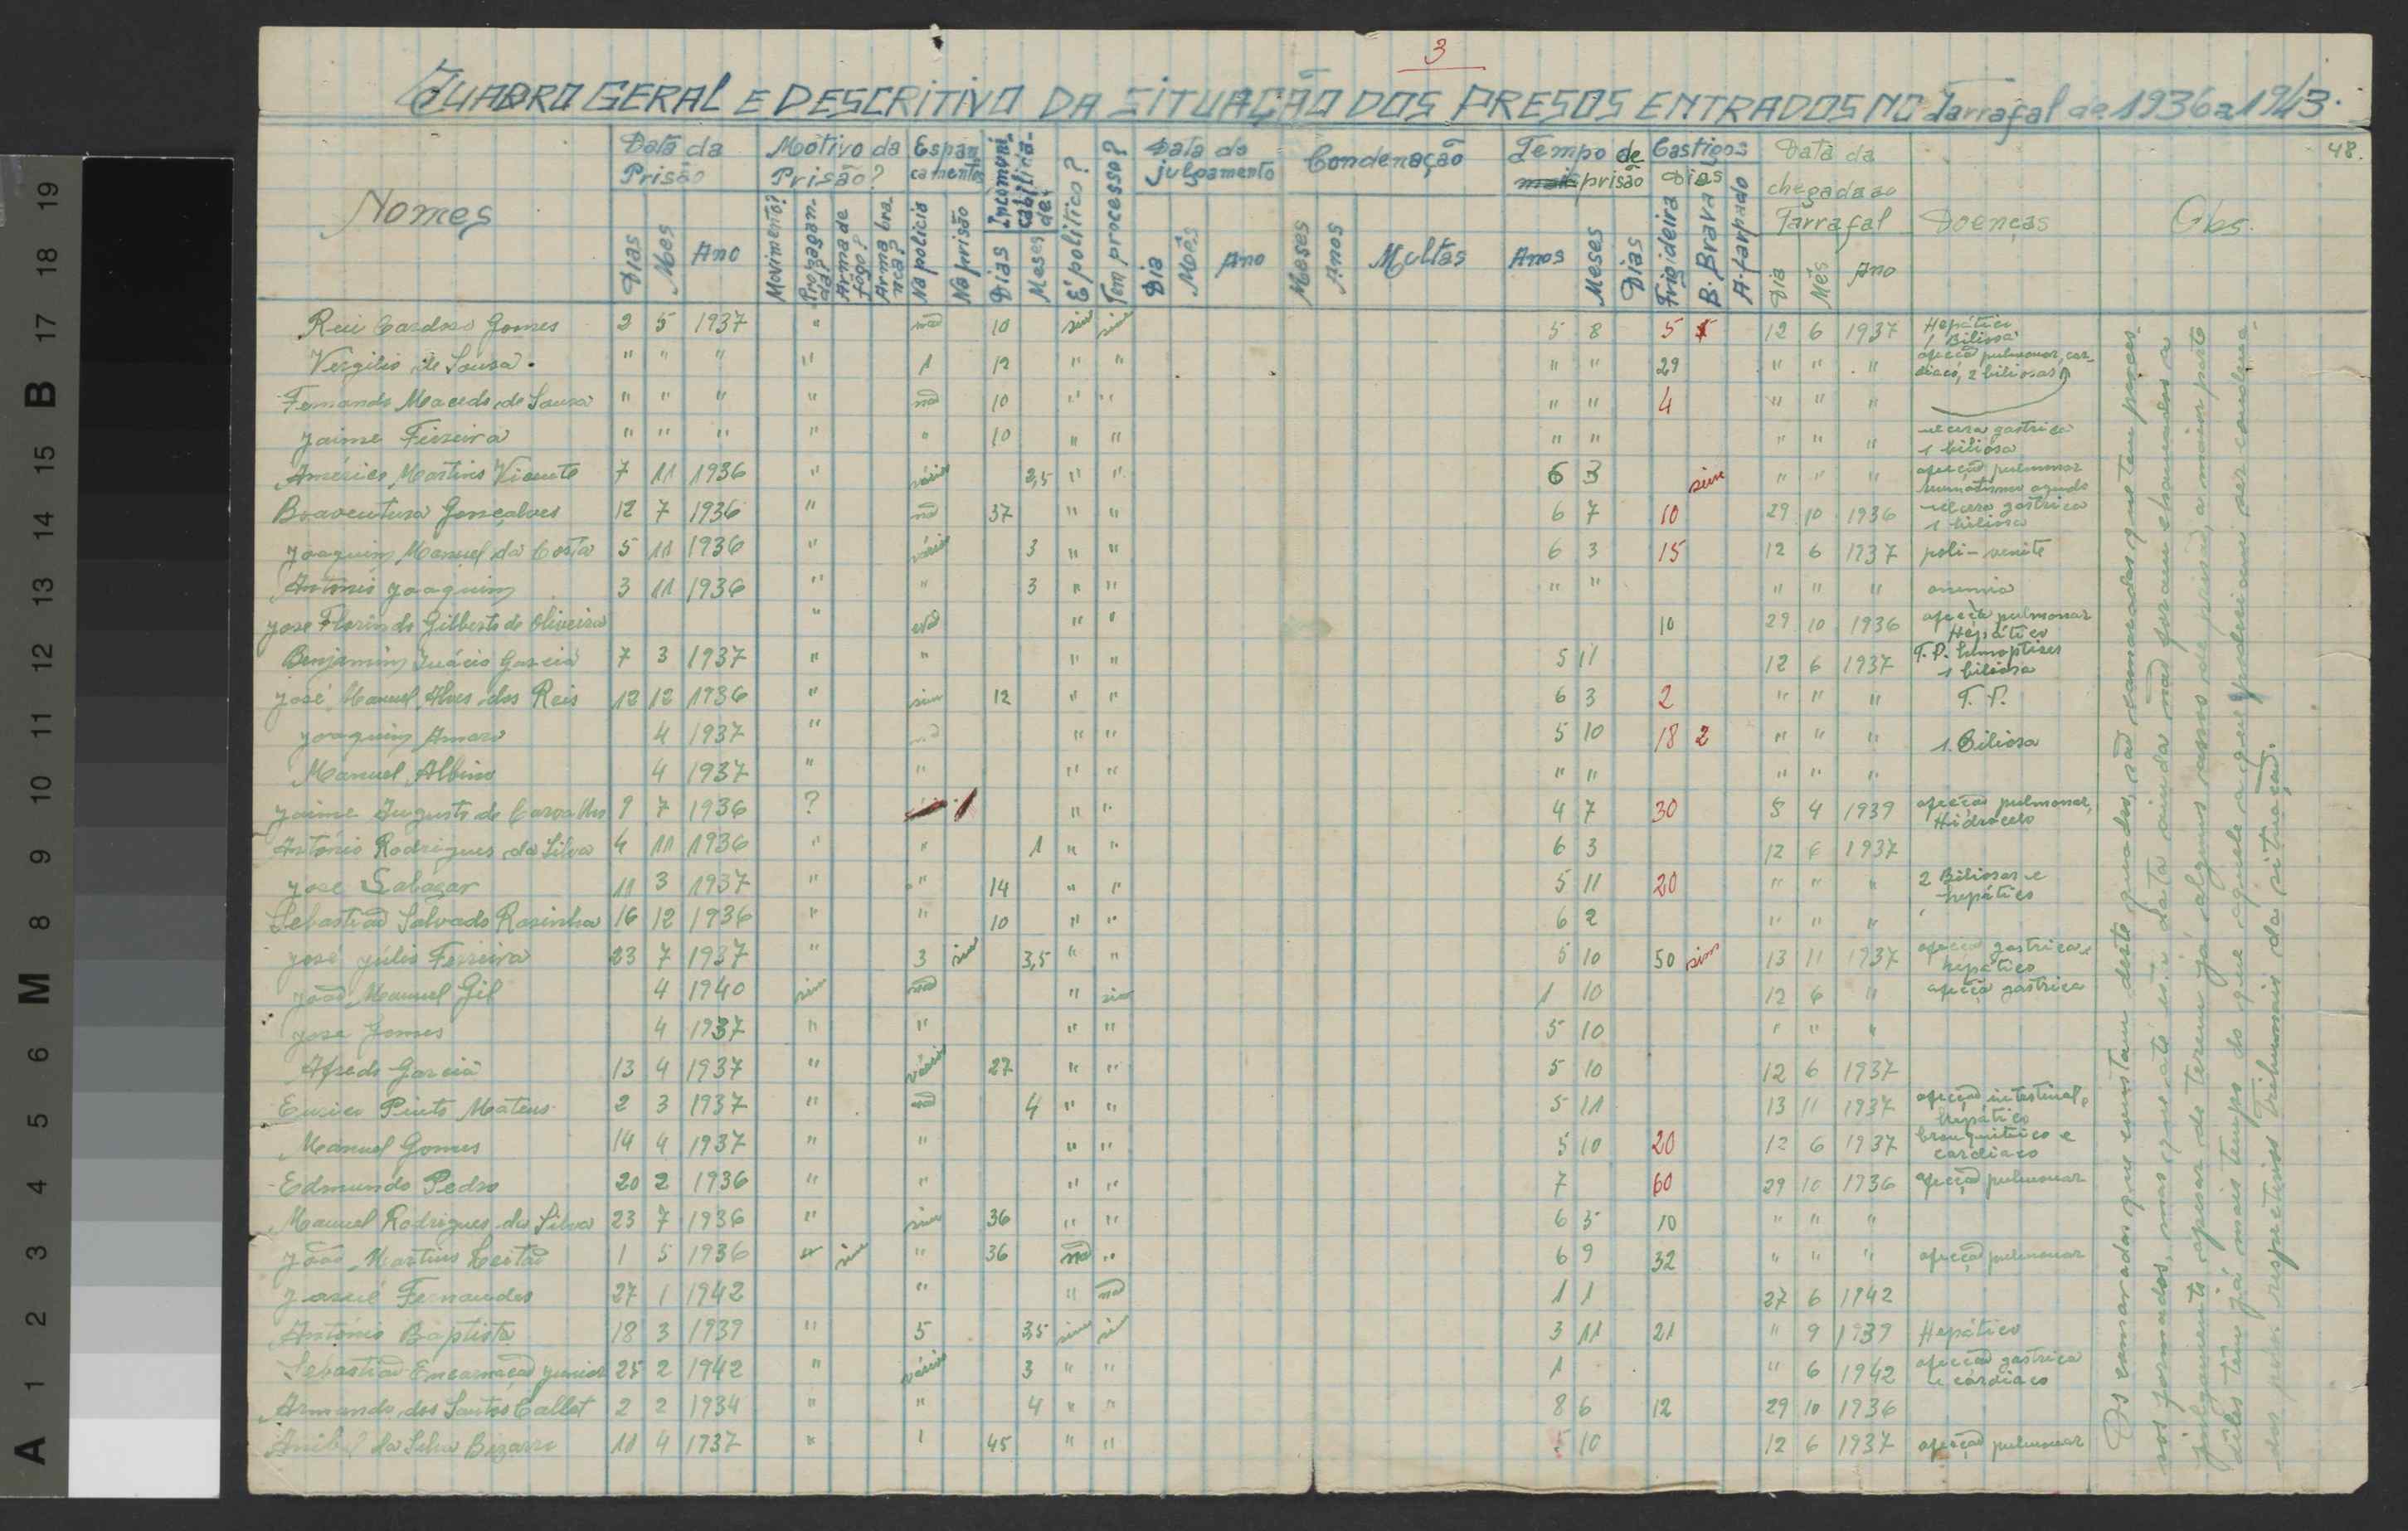 3
QUADRO GERAL E DESCRITIVO DA SITUAÇÃO DOS PRESOS ENTRADOS NO Tarrafal de 1936 a 1943.
48.
Nomes
Data da Prisão
Dias Mes Ano
Motivo da Prisão?
Movimento? Propaganda? Arma de fogo? Arma branca?
Espancamentos
Na policia Na prisão
Incomunicabilidade
Dias Meses
E' politico? Tem processo?
Data do julgamento
Dia Mês Ano
Condenação
Meses Anos Multas
Tempo de prisão
Anos Meses Dias
Castigos Dias
Frigideira B. Brava A. Farpado
Data da chegada ao Tarrafal
Dia Mês Ano
Doenças
Obs.
Rui Cardoso Gomes 2 5 1937 " não 10 sim sim 5 8 5 12 6 1937 Hepático 1 Biliosa
Vergilio de Sousa. " " " " 1 12 " " " " 29 " " " afecção pulmonar, cardiaco, 2 biliosas
Fernando Macedo de Sousa " " " " não 10 " " " " 4 " " "
Jaime Ferreira " " " " " 10 " " " " " " " ulcera gastrica 1 biliosa
Américo Martins Vicente 7 11 1936 " vários 2,5 " " 6 3 sim " " " afecção pulmonar reumatismo agudo
Boaventura Gonçalves 12 7 1936 " não 37 " " 6 7 10 29 10 1936 ulcera gastrica 1 biliosa
Joaquim Manuel da Costa 5 11 1936 " vários 3 " " 6 3 15 12 6 1937
António Joaquim 3 11 1936 " " 3 " " " " " " " anemia
José Florindo Gilberto de Oliveira " não " " 10 29 10 1936 afecção pulmonar Hepático
Benjamim Inácio Garcia 7 3 1937 " " " " 5 11 12 6 1937 T.P. hemoptises 1 biliosa
José Manuel Alves dos Reis 12 12 1936 " sim 12 " " 6 3 2 " " " T.P.
Joaquim Amaro 4 1937 " não " " 5 10 18 2 " " " 1 Biliosa
Manuel Albino 4 1937 " " " " " " " " "
Jaime Augusto de Carvalho 9 7 1936 ? 1 " " 4 7 30 5 4 1939 afecção pulmonar, Hidrocelo
António Rodrigues da Silva 4 11 1936 " " 1 " " 6 3 12 6 1937
José Salazar 11 3 1937 " " 14 " " 5 11 20 " " " 2 Biliosas e hepático
Sebastião Salvado Rosinha 16 12 1936 " " 10 " " 6 2 " " "
José Júlio Ferreira 23 7 1937 " 3 sim 3,5 " " 5 10 50 sim 13 11 1937 afecção gastrica e hepático
João Manuel Gil 4 1940 sim não " sim 1 10 12 6 " afecção gastrica
José Gomes 4 1937 " " " " 5 10 " " "
Alfredo Garcia 13 4 1937 " vários 27 " " 5 10 12 6 1937
Eurico Pinto Mateus 2 3 1937 " não 4 " " 5 11 13 11 1937 afecção intestinal e hepático
Manuel Gomes 14 4 1937 " " " " 5 10 20 12 6 1937 bronquitico e cardiaco
Edmundo Pedro 20 2 1936 " " " " 7 60 29 10 1936 afecção pulmonar
Manuel Rodrigues da Silva 23 7 1936 " sim 36 " " 6 5 10 " " "
João Martins Leitão 1 5 1936 " sim " 36 não " 6 9 32 " " " afecção pulmonar
Fernandes 27 1 1942 " " não 1 1 27 6 1942
António Baptista 18 3 1939 " 5 3,5 sim sim 3 11 21 " 9 1939 Hepático
Sebastião Encarnação Junior 25 2 1942 " vários 3 " " 1 " 6 1942 afecção gastrica e cardiaco
Armando dos Santos Callet 2 2 1934 " " 4 " " 8 6 12 29 10 1936
Anibal da Silva Bizarro 11 4 1937 " 1 45 " " 5 10 12 6 1937 afecção pulmonar
Os camaradas que constam deste quadro, são camaradas que tem proces-
sos formados, mas que até esta data ainda não foram chamados a
julgamento apesar de terem já alguns anos de prisão, a maior parte
deles têm já mais tempo do que aquele a que poderiam ser condena-
dos pelos respectivos Tribunais da situação.